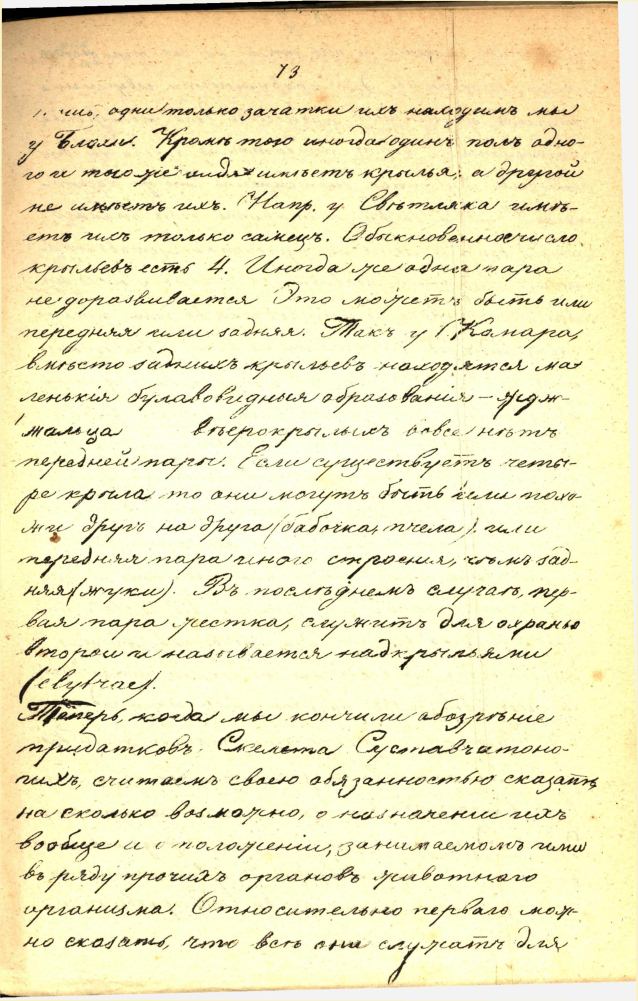 73
одни только зачатки ихъ находимъ мы
у Блохи. Кромѣ того иногда одинъ полъ одно-
го и того же вида имѣетъ крылья, а другой
не имѣетъ ихъ. Напр. у Свѣтляка имѣ-
етъ ихъ только самецъ. Обыкновенно число
крыльевъ есть 4. Иногда же одна пара
не доразвивается Это можетъ быть или
передняя или задняя. Такъ у Комара,
вмѣсто заднихъ крыльевъ находятся ма-
ленькія булавовидныя образования – жуж-
жальца вѣерокрылыхъ вовсе нѣтъ
передней пары. Если существуетъ четы-
ре крыла то они могутъ быть или похо-
жи другъ на друга (бабочка, пчела) или
передняя пара иного строения, чѣмъ зад-
няя (жуки). Въ послѣднемъ случаѣ, пер-
вая пара жестка, служитъ для охраны
второй и называется надкрыльями
Теперь, когда мы кончили обозрѣние
придатковъ Скелета Суставчатоно-
гихъ, считаемъ своею обязанностью сказать,
на сколько возможно, о назначении ихъ
вообще и о положении, занимаемомъ ими
въ ряду прочихъ органовъ животнаго
организма. Относительно перваго мож-
но сказать, что всѣ они служатъ для